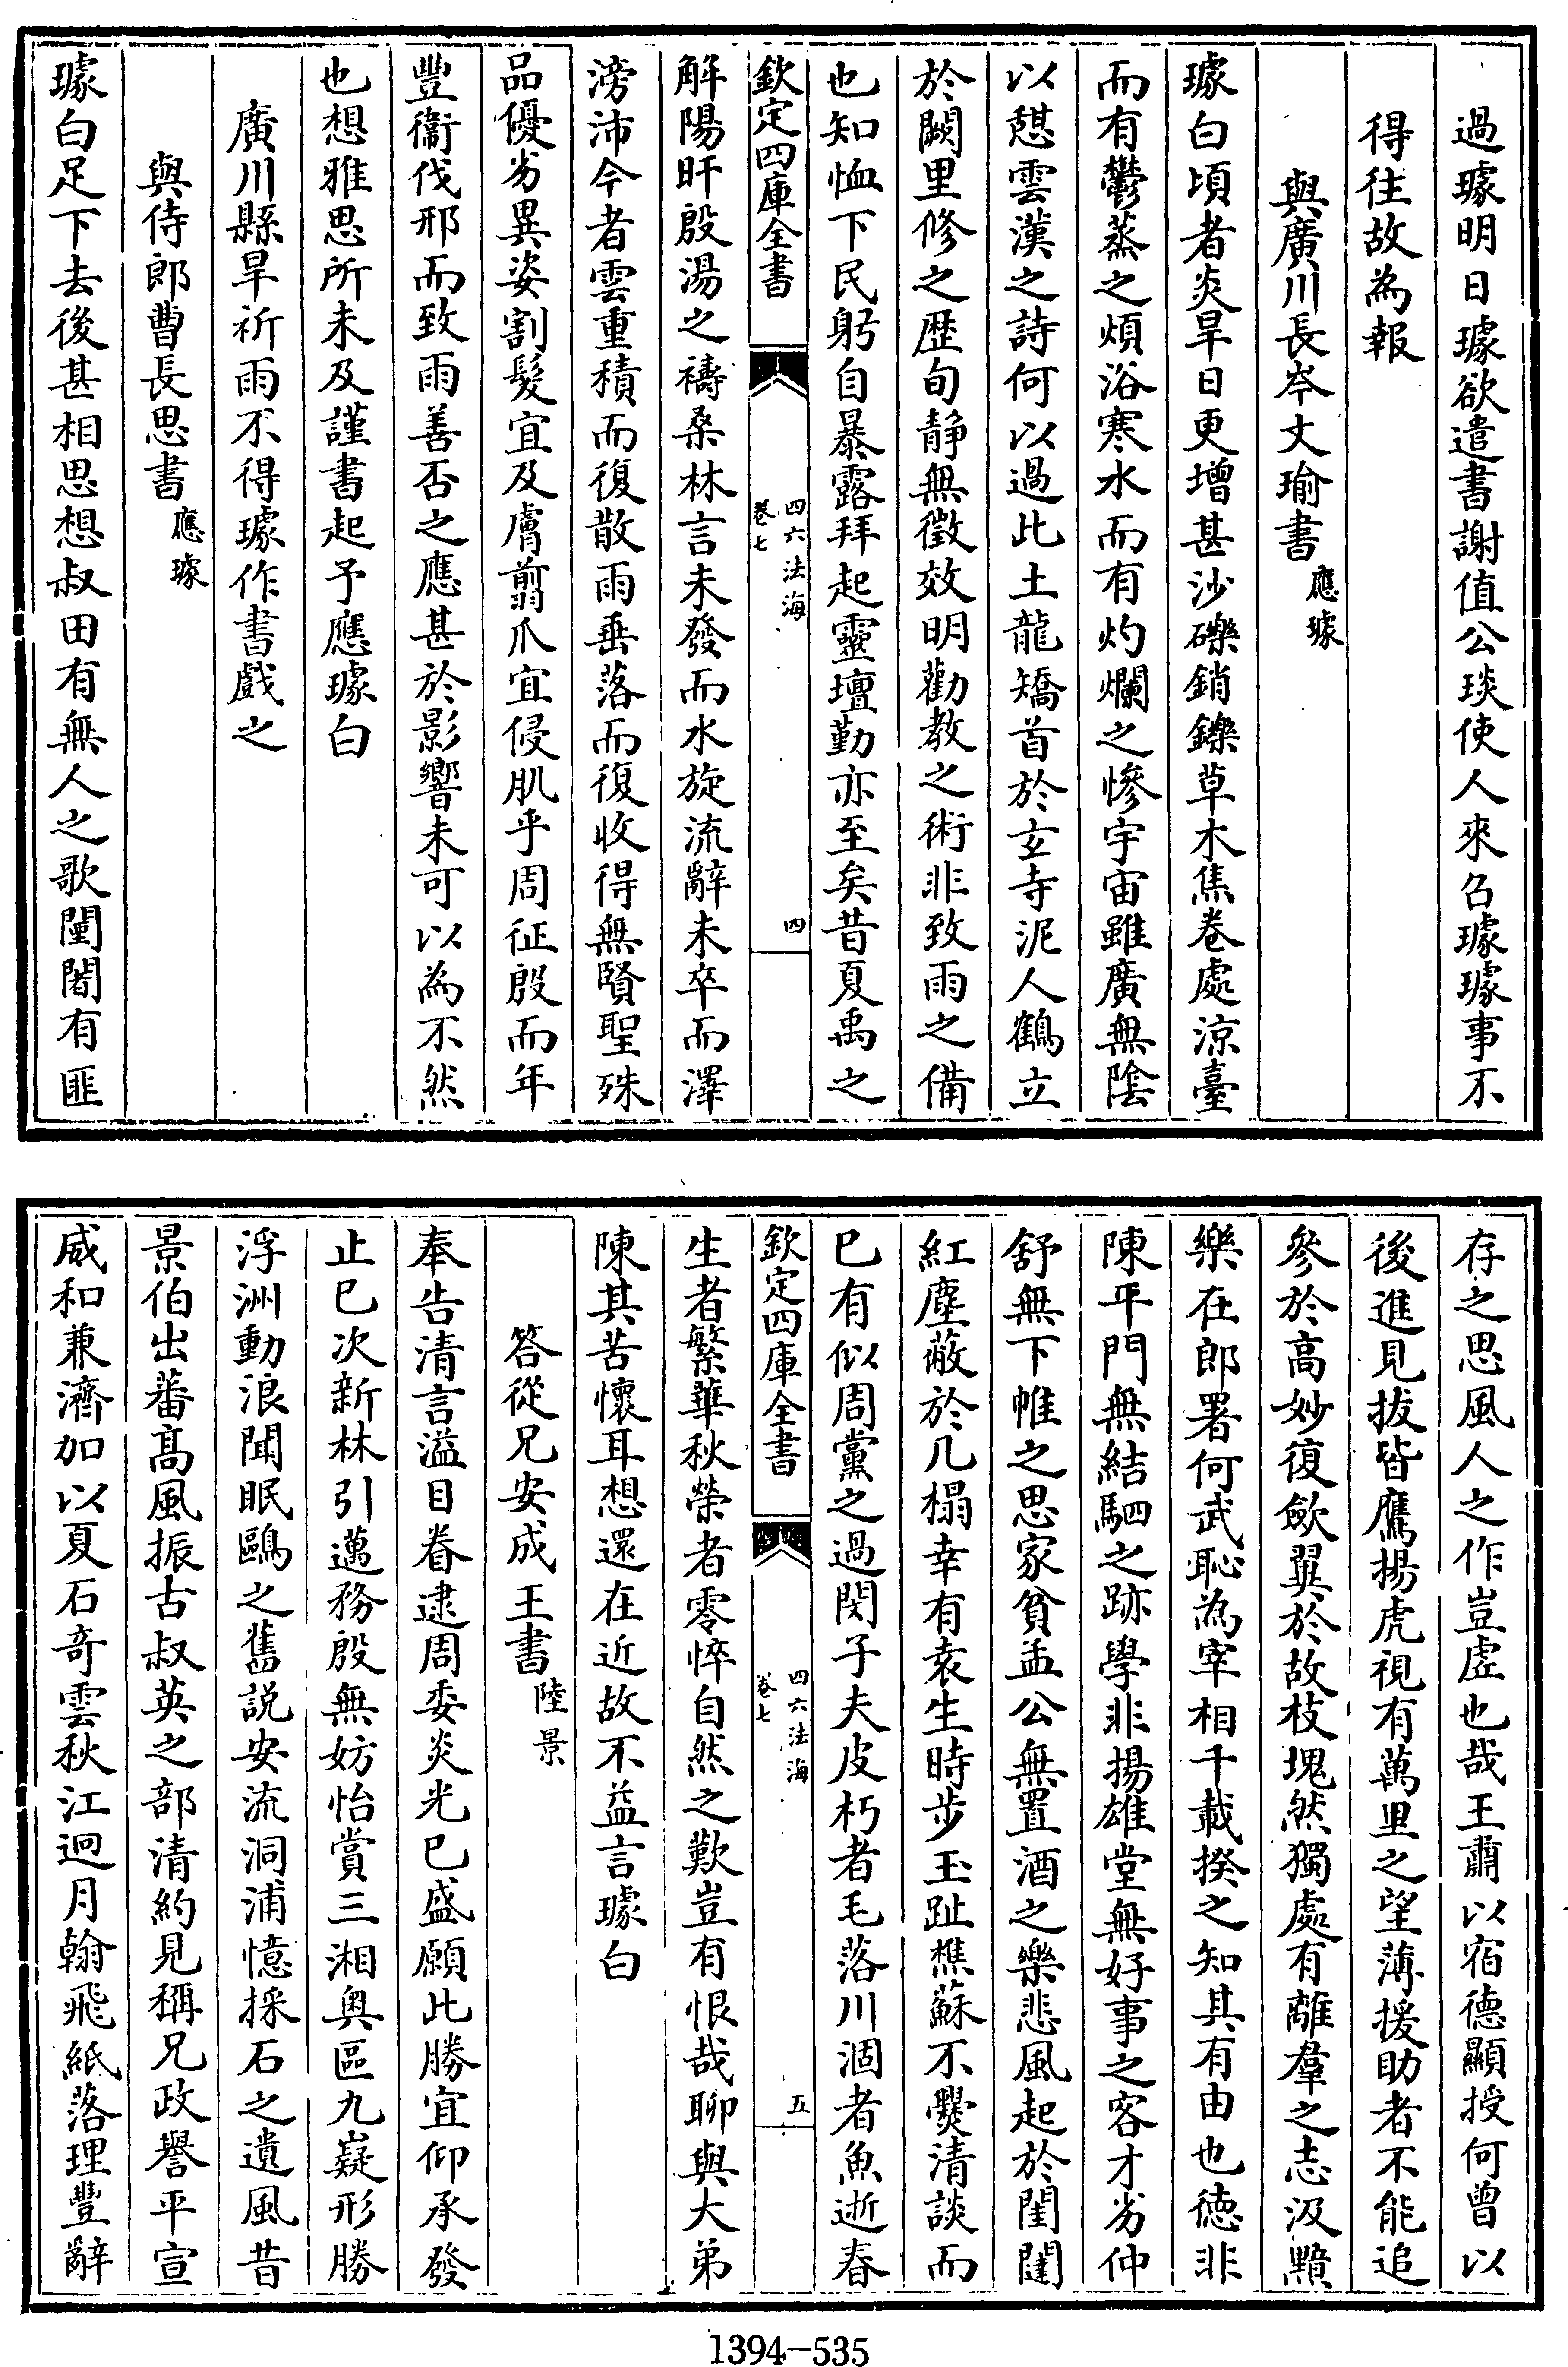 過璩明日璩欲遣書謝值公琰使人來召璩璩事不
得往故為報
與廣川長岑文瑜書 應璩
璩白頃者炎旱日更增甚沙礫銷鑠草木焦卷處涼臺
而有鬱蒸之煩浴寒水而有灼爛之慘宇宙雖廣無陰
以憩雲漢之詩何以過此土龍矯首於玄寺泥人鶴立
於闕里修之歷旬静無徵效明勸教之術非致雨之備
也知恤下民躬自暴露拜起靈壇勤亦至矣昔夏禹之
欽定四庫全書 四六法海 卷七 四
解陽旰殷湯之禱桑林言未發而水旋流辭未卒而澤
滂沛今者雲重積而復散雨垂落而復收得無賢聖殊
品優劣異姿割髮宜及膚翦爪宜侵肌乎周征殷而年
豐衞伐邢而致雨善否之應甚於影響未可以為不然
也想雅思所未及謹書起予應璩白
廣川縣旱祈雨不得璩作書戲之
與侍郎曹長思書 應璩
璩白足下去後甚相思想叔田有無人之歌闉闍有匪
存之思風人之作豈虛也哉王肅以宿德顯授何曾以
後進見拔皆鷹揚虎視有萬里之望薄援助者不能追
參於高妙復歛翼於故枝塊然獨處有離羣之志汲黯
樂在郎署何武恥為宰相千載揆之知其有由也德非
陳平門無結駟之跡學非揚雄堂無好事之客才劣仲
舒無下帷之思家貧孟公無置酒之樂悲風起於閨闥
紅塵蔽於几榻幸有袁生時步玉趾樵蘇不爨清談而
已有似周黨之過閔子夫皮朽者毛落川涸者魚逝春
欽定四庫全書 四六法海 卷七 五
生者繁華秋榮者零悴自然之歎豈有恨哉聊與大弟
陳其苦懷耳想還在近故不益言璩白
答從兄安成王書 陸景
奉告清言溢目眷逮周委炎光已盛願此勝宜仰承發
止已次新林引邁務殷無妨怡賞三湘奥區九嶷形勝
浮洲動浪聞眠鷗之舊説安流洞浦憶採石之遺風昔
景伯出蕃髙風振古叔英之部清約見稱兄政譽平宣
威和兼濟加以夏石奇雲秋江迥月翰飛紙落理豐辭
1394-535